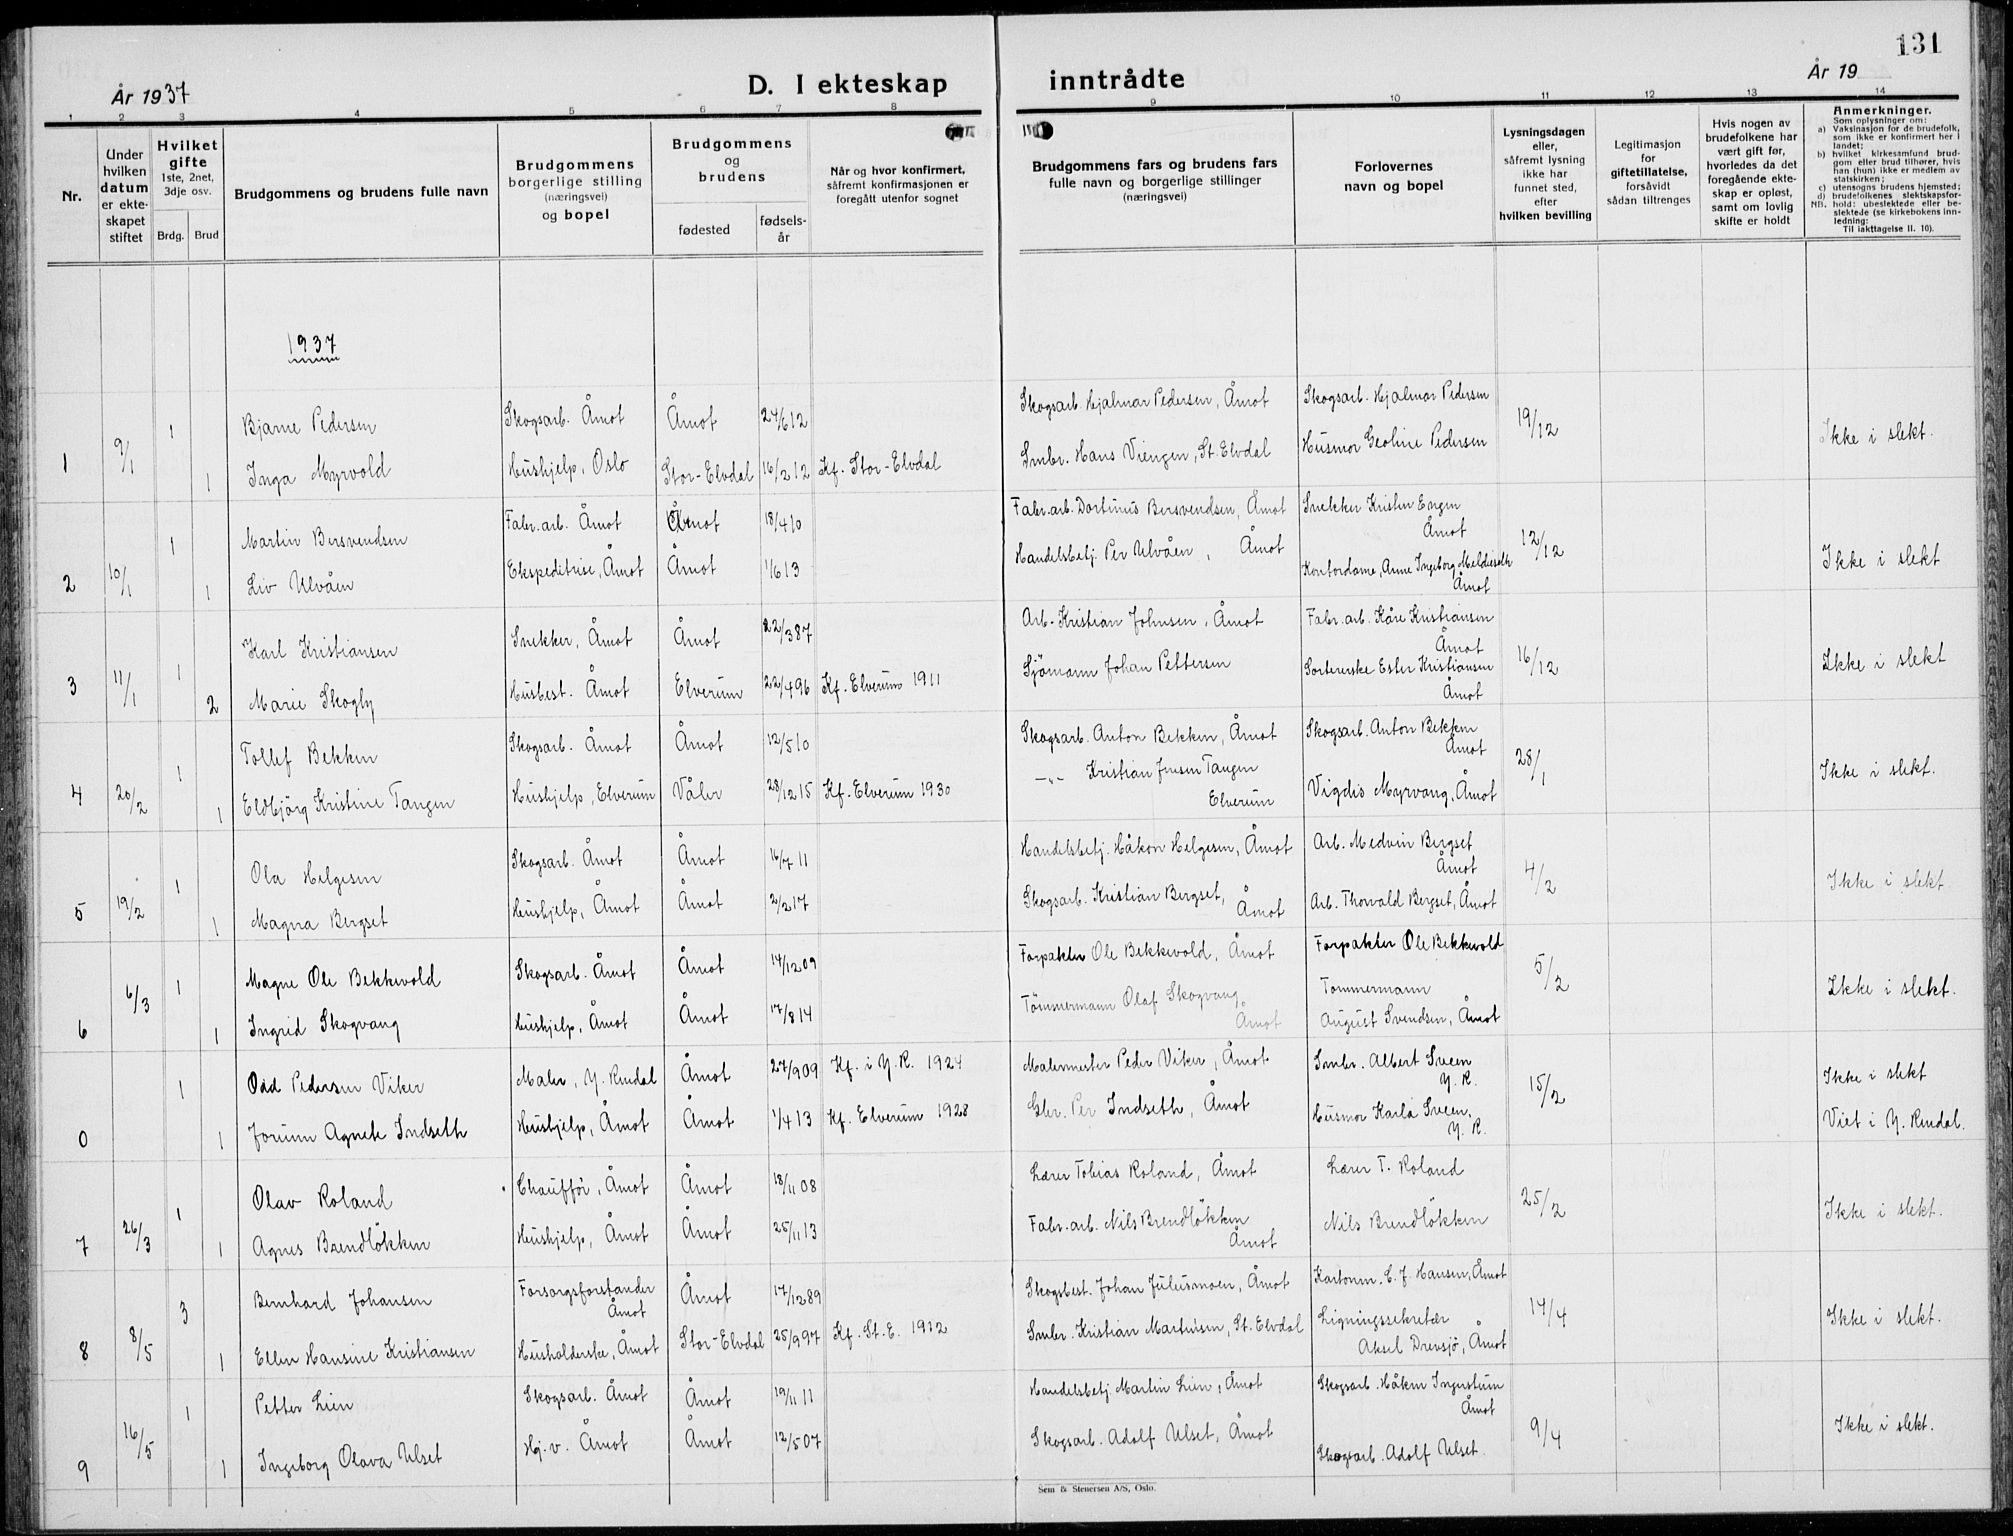 131
År 1937
D. I ekteskap inntrådte
År 19
1 2 3 4 5 6 7 8 9 10 11 12 13 14
Nr.
Under hvilken datum er ekte-skapet stiftet
Hvilket gifte
1ste, 2net, 3dje osv.
Brdg. Brud
Brudgommens og brudens fulle navn
Brudgommens borgerlige stilling (næringsvei) og bopel
Brudgommens og brudens
fødested
fødsels-år
Når og hvor konfirmert, såfremt konfirmasjonen er foregått utenfor sognet
Brudgommens fars og brudens fars fulle navn og borgerlige stillinger (næringsvei)
Forlovernes navn og bopel
Lysningsdagen eller, såfremt lysning ikke har funnet sted, efter hvilken bevilling
Legitimasjon for giftetillatelse, forsåvidt sådan tiltrenges
Hvis nogen av brudefolkene har vært gift før, hvorledes da det foregående ekte-skap er opløst, samt om lovlig skifte er holdt
Anmerkninger.
Som oplysninger om:
a) Vaksinasjon for de brudefolk, som ikke er konfirmert her i landet;
b) hvilket kirkesamfund brud-gom eller brud tilhører, hvis han (hun) ikke er medlem av statskirken;
c) utensogns brudens hjemsted;
d) brudefolkenes slektskapsfor-
NB. hold: ubeslektede eller be-slektede (se kirkebokens inn-ledning:
Til iakttagelse II. 10).
1937
Bjarne Pedersen Skogsarb. Åmot Åmot 24/6 12 Skogsarb. Hjalmar Pedersen, Åmot Skogsarb. Hjalmar Pedersen
1 9/1 1 1 Inga Myrvold Hushjelp, Oslo Stor-Elvdal 16/2 12 Kf. Stor-Elvdal Smbr. Hans Viengen, St. Elvdal Husmor Geoline Pedersen 19/12 Ikke i slekt.
Martin Bersvendsen Fabr.arb. Åmot Åmot 18/4 10 Fabr.arb. Dortinus Bersvendsen, Åmot Snekker Kristen Engen
Åmot
2 10/1 1 1 Liv Ulvåen Ekspeditrise, Åmot Åmot 1/6 13 Handelsbetj. Per Ulvåen, Åmot Kontordame, Anne Ingeborg Meldieseth 12/12 Ikke i slekt
Åmot
Karl Kristiansen Snekker, Åmot Åmot 22/3 87 Arb. Kristian Johnsen, Åmot Fabr.arb. Kåre Kristiansen
Åmot
3 11/1 1 2 Marie Skogly Husbest. Åmot Elverum 22/4 96 Kf. Elverum 1911 Sjömann Johan Pettersen Sortererske Ester Kristiansen 16/12 Ikke i slekt
Åmot
Tollef Bekken Skogsarb. Åmot Åmot 12/5 10 Skogsarb. Anton Bekken, Åmot Skogsarb. Anton Bekken
Åmot
4 20/2 1 1 Eldbjörg Kristine Tangen Hushjelp, Elverum Våler 28/12 15 Kf. Elverum 1930 -"- Kristian Jensen Tangen Vigdis Myrvang, Åmot 28/1 Ikke i slekt.
Elverum
Ola Helgesen Skogsarb. Åmot Åmot 16/7 11 Handelsbetj. Håkon Helgesen, Åmot Arb. Medvin Bergset
Åmot
5 19/2 1 1 Magna Bergset Hushjelp, Åmot Åmot 2/2 17 Skogsarb. Kristian Bergset, Arb. Thorvald Bergset, Åmot 4/2 Ikke i slekt
Åmot
Magne Ole Bekkevold Skogsarb. Åmot Åmot 14/12 09 Forpakter Ole Bekkevold, Åmot Forpakter Ole Bekkevold
6 6/3 1 1 Ingrid Skogvang Hushjelp, Åmot Åmot 17/8 14 Tömmermann Olaf Skogvang Tommermann 5/2 Ikke i slekt.
Åmot August Svendsen, Åmot
Odd Pedersen Viker Maler, Y. Rendal Åmot 27/9 09 Kf. i Y. R. 1924 Malermester Peder Viker, Åmot Smbr. Albert Sveen Ikke i slekt
Y. R.
0 1 1 Jorunn Agnete Indseth Hushjelp, Åmot Åmot 1/4 13 Kf. Elverum 1928 Gbr. Per Indseth, Åmot Husmor Karla Sveen, 15/2 Viet i Y. Rendal.
Y. R.
Olav Roland Chaufför, Åmot Åmot 18/11 08 Lærer Tobias Roland, Åmot Lærer T. Roland
7 26/3 1 1 Agnes Brendlökken Hushjelp, Åmot Åmot 25/11 13 Fabr.arb. Nils Brendlökken Nils Brendlökken 25/2 Ikke i slekt.
Åmot
Bernhard Johansen Forsorgsforstander Åmot 17/12 89 Skogsbest. Johan Juliusmoen, Åmot Kartonm. E. J. Hansen, Åmot
Åmot
8 8/5 3 1 Ellen Hansine Kristiansen Husholderske, Åmot Stor-Elvdal 25/9 97 Kf. St. E. 1912 Smbr. Kristian Martinsen, St. Elvdal Ligningssekretær 14/4 Ikke i slekt.
Aksel Drevsjø, Åmot
Petter Lien Skogsarb. Åmot Åmot 19/11 11 Handelsbetj. Martin Lien, Åmot Skogsarb. Håken Ingustun
Åmot
9 16/5 1 1 Ingeborg Olava Ulset Hj. v. Åmot Åmot 12/5 07 Skogsarb. Adolf Ulset, Åmot Skogsarb. Adolf Ulset 9/4 Ikke i slekt.
Sem & Stenersen A/S, Oslo.